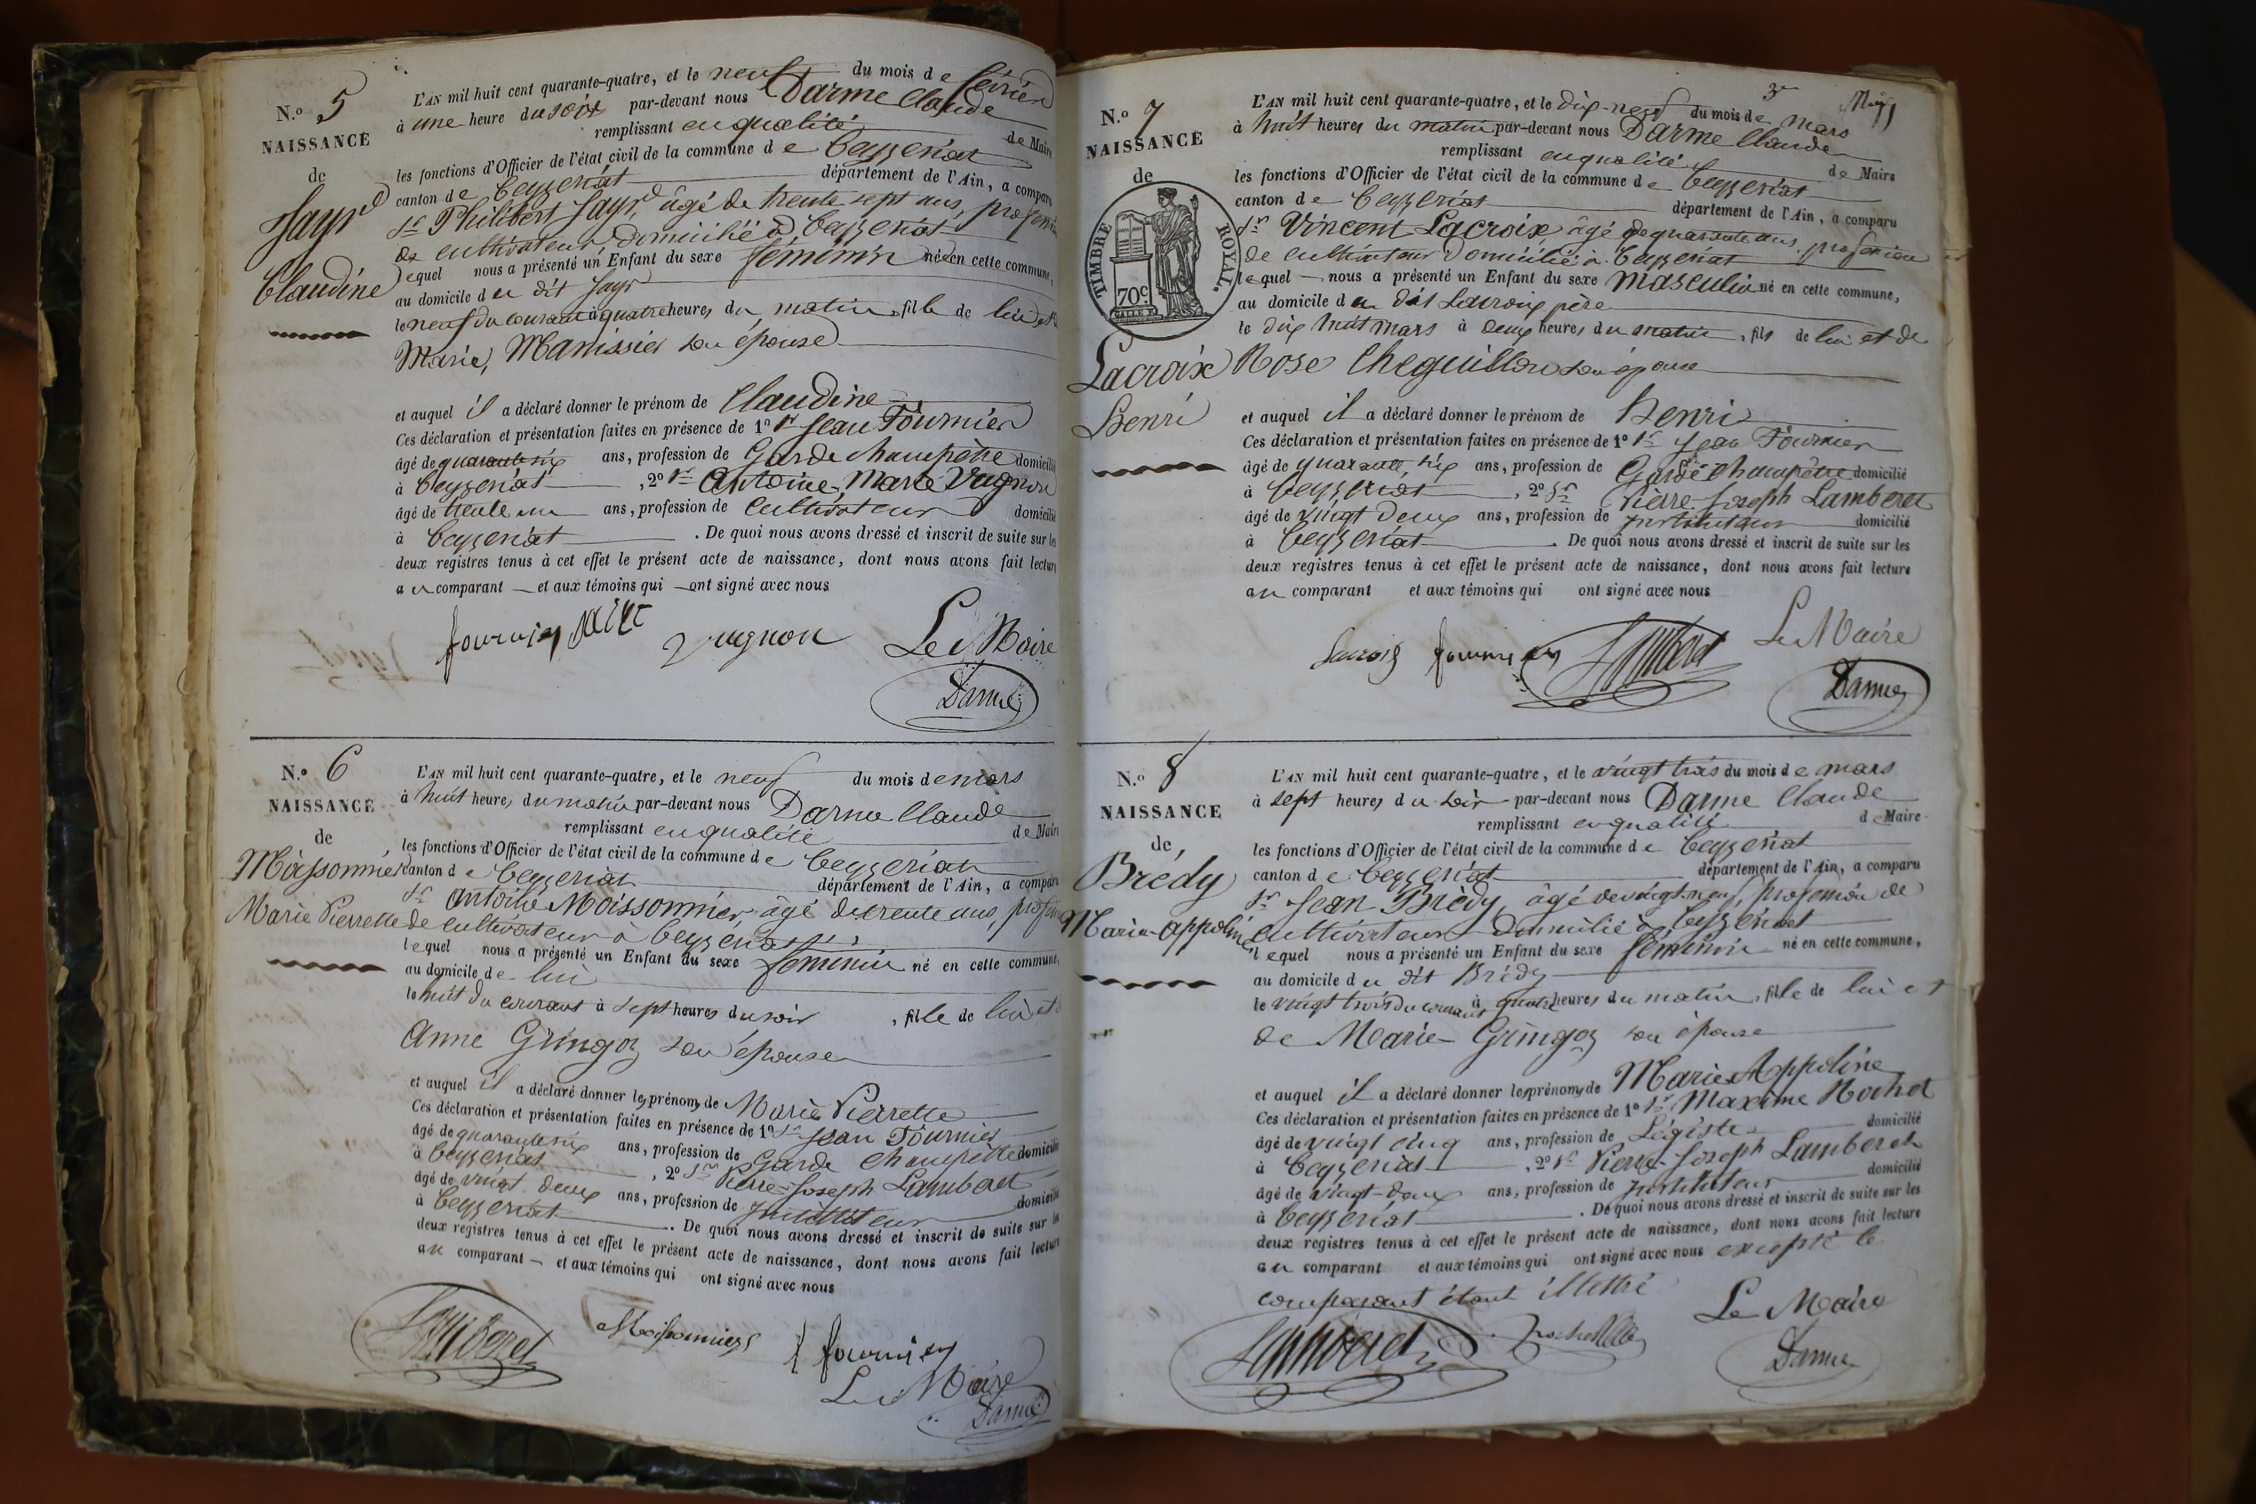 N.º 5
NAISSANCE
de
Jayr
Claudine
L'AN mil huit cent quarante-quatre, et le neuf du mois de février
à une heure du soir par-devant nous Darme Claude
remplissant en qualité de Maire
les fonctions d'Officier de l'état civil de la commune de Ceyzeriat
canton de Ceyzeriat département de l'Ain, a comparu
Sr Philibert Jayr, âgé de trente sept ans, profession
de cultivateur, domicilié à Ceyzeriat
lequel nous a présenté un Enfant du sexe féminin né en cette commune,
au domicile du dit Jayr
le neuf du courant à quatre heures du matin, fille de lui et
Marie, Manissier son épouse
et auquel il a déclaré donner le prénom de Claudine
Ces déclaration et présentation faites en présence de 1º Sr Jean Fournier
âgé de quarante six ans, profession de Garde Champêtre domicilié
à Ceyzeriat, 2º Sr Antoine Marie Vugnon
âgé de trente un ans, profession de Cultivateur domicilié
à Ceyzeriat. De quoi nous avons dressé et inscrit de suite sur les
deux registres tenus à cet effet le présent acte de naissance, dont nous avons fait lecture
au comparant et aux témoins qui ont signé avec nous
fournier vugnon Le Maire
Darme
N.º 6
NAISSANCE
de
Moissonnier
Marie Pierrette
L'AN mil huit cent quarante-quatre, et le neuf du mois de mars
à huit heures du matin par-devant nous Darme Claude
remplissant en qualité de Maire
les fonctions d'Officier de l'état civil de la commune de Ceyzeriat
canton de Ceyzeriat département de l'Ain, a comparu
Sr Antoine Moissonnier âgé de trente ans, profession
de cultivateur à Ceyzeriat
lequel nous a présenté un Enfant du sexe féminin né en cette commune,
au domicile de lui
le huit du courant à sept heures du soir, fille de lui et
Anne Gringoz son épouse
et auquel il a déclaré donner les prénoms de Marie Pierrette
Ces déclaration et présentation faites en présence de 1º Sr Jean Fournier
âgé de quarante six ans, profession de Garde Champêtre domicilié
à Ceyzeriat, 2º Sr Pierre Joseph Lamberet
âgé de vingt deux ans, profession de Instituteur domicilié
à Ceyzeriat. De quoi nous avons dressé et inscrit de suite sur les
deux registres tenus à cet effet le présent acte de naissance, dont nous avons fait lecture
au comparant et aux témoins qui ont signé avec nous
Lamberet Moissonnier fournier
Le Maire
Darme
N.º 7
NAISSANCE
de
TIMBRE ROYAL.
70c
Lacroix
Henri
L'AN mil huit cent quarante-quatre, et le dix-neuf du mois de mars
à huit heures du matin par-devant nous Darme Claude
remplissant en qualité de Maire
les fonctions d'Officier de l'état civil de la commune de Ceyzeriat
canton de Ceyzeriat département de l'Ain, a comparu
Sr Vincent Lacroix âgé de quarante ans, profession
de cultivateur domicilié à Ceyzeriat
lequel nous a présenté un Enfant du sexe masculin né en cette commune,
au domicile du dit Lacroix père
le dix huit mars à deux heures du matin, fils de lui et de
Rose Cheguillon son épouse
et auquel il a déclaré donner le prénom de Henri
Ces déclaration et présentation faites en présence de 1º Sr Jean Fournier
âgé de quarante six ans, profession de Garde Champêtre domicilié
à Ceyzeriat, 2º Sr Pierre Joseph Lamberet
âgé de vingt deux ans, profession de Instituteur domicilié
à Ceyzeriat. De quoi nous avons dressé et inscrit de suite sur les
deux registres tenus à cet effet le présent acte de naissance, dont nous avons fait lecture
au comparant et aux témoins qui ont signé avec nous
Lacroix fournier Lamberet Le Maire
Darme
N.º 8
NAISSANCE
de
Brédy
Marie-Appoline
L'AN mil huit cent quarante-quatre, et le vingt trois du mois de mars
à sept heures du soir par-devant nous Darme Claude
remplissant en qualité de Maire
les fonctions d'Officier de l'état civil de la commune de Ceyzeriat
canton de Ceyzeriat département de l'Ain, a comparu
Sr Jean Brédy, âgé de vingt-neuf, profession de
cultivateur domicilié à Ceyzeriat
lequel nous a présenté un Enfant du sexe féminin né en cette commune,
au domicile du dit Brédy
le vingt trois du courant à quatre heures du matin, fille de lui et
de Marie Gringoz son épouse
et auquel il a déclaré donner les prénoms de Marie Appoline
Ces déclaration et présentation faites en présence de 1º Sr Maxime Rochet
âgé de vingt cinq ans, profession de Légiste domicilié
à Ceyzeriat, 2º Sr Pierre-Joseph Lamberet
âgé de vingt-deux ans, profession de Instituteur domicilié
à Ceyzeriat. De quoi nous avons dressé et inscrit de suite sur les
deux registres tenus à cet effet le présent acte de naissance, dont nous avons fait lecture
au comparant et aux témoins qui ont signé avec nous excepté le
comparant étant illettré
Le Maire
Lamberet Darme